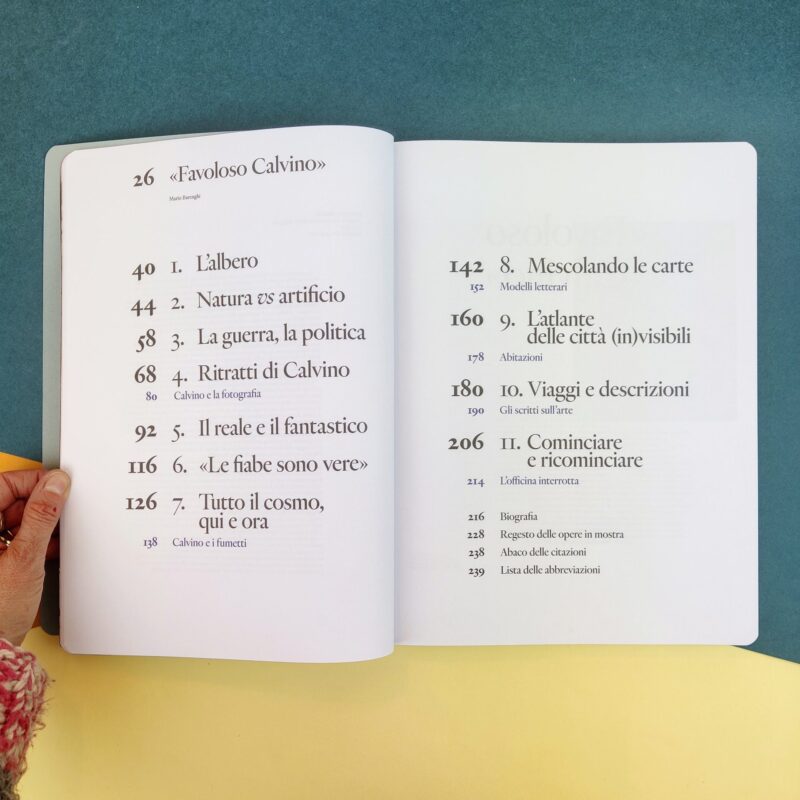 26 «Favoloso Calvino»
Mario Barenghi
40 1. L'albero
44 2. Natura vs artificio
58 3. La guerra, la politica
68 4. Ritratti di Calvino
80 Calvino e la fotografia
92 5. Il reale e il fantastico
116 6. «Le fiabe sono vere»
126 7. Tutto il cosmo,
qui e ora
138 Calvino e i fumetti
142 8. Mescolando le carte
152 Modelli letterari
160 9. L'atlante
delle città (in)visibili
178 Abitazioni
180 10. Viaggi e descrizioni
190 Gli scritti sull'arte
206 11. Cominciare
e ricominciare
214 L'officina interrotta
216 Biografia
228 Regesto delle opere in mostra
238 Abaco delle citazioni
239 Lista delle abbreviazioni